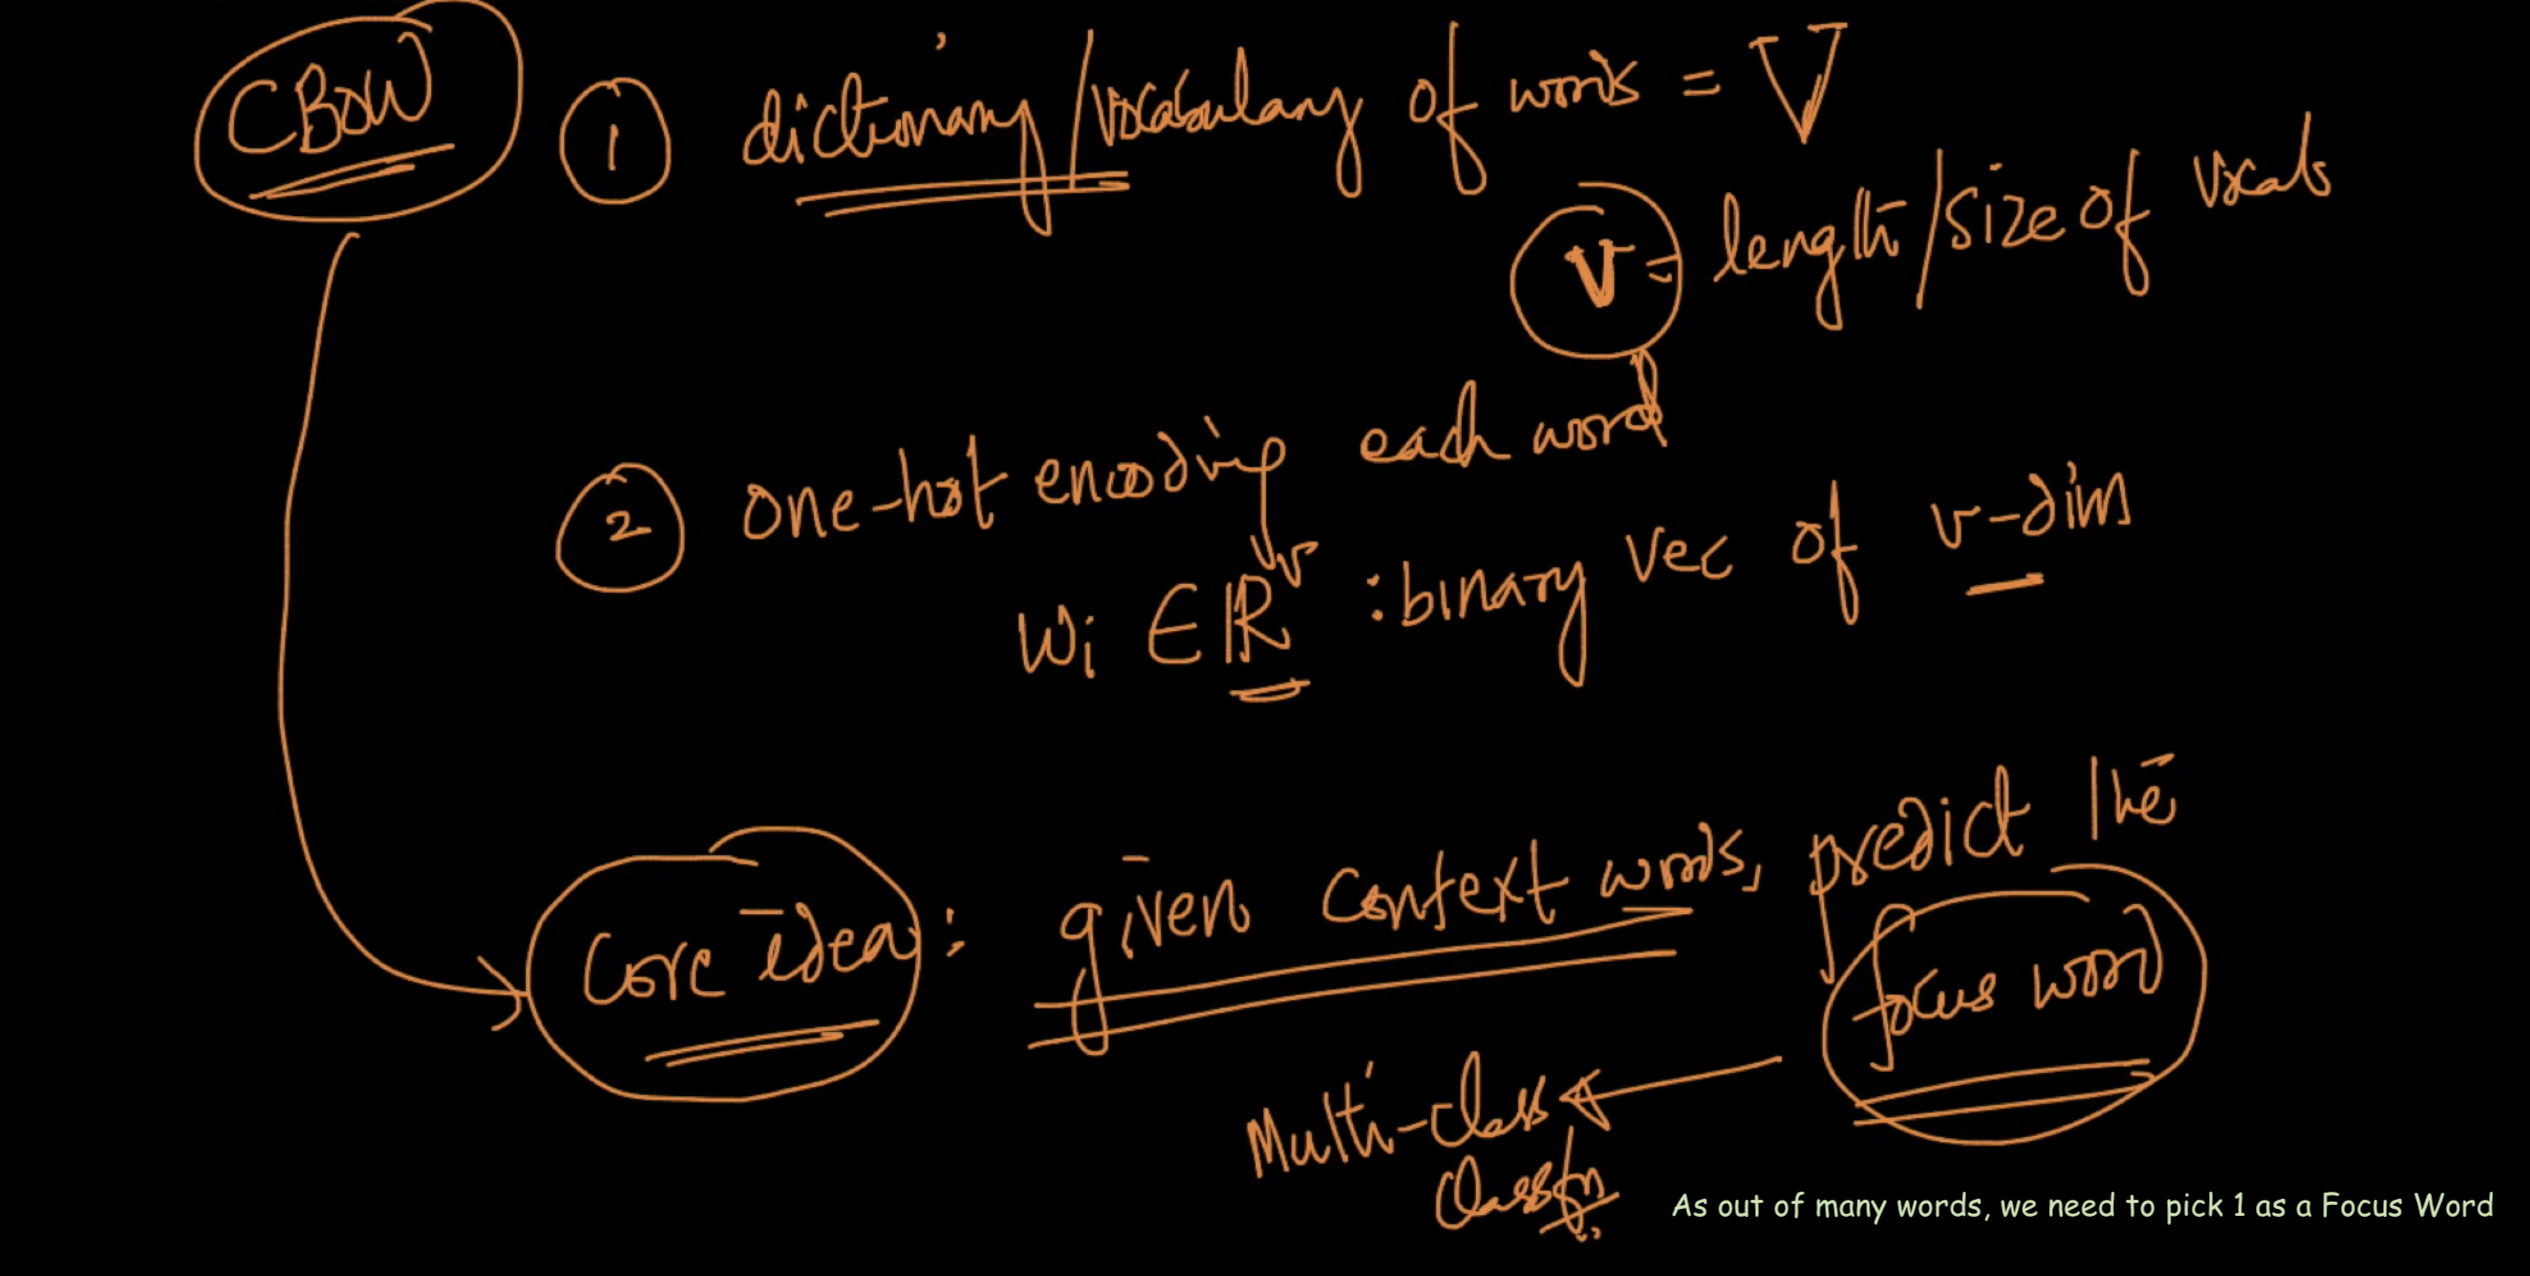 CBOW
1 dictionary/vocabulary of words = V
v = length/size of vocab
2 one-hot encoding each word
Wi ∈ ℝᵛ : binary vec of v-dim
Core idea: given context words, predict the
focus word
Multi-class
Classfn
As out of many words, we need to pick 1 as a Focus Word